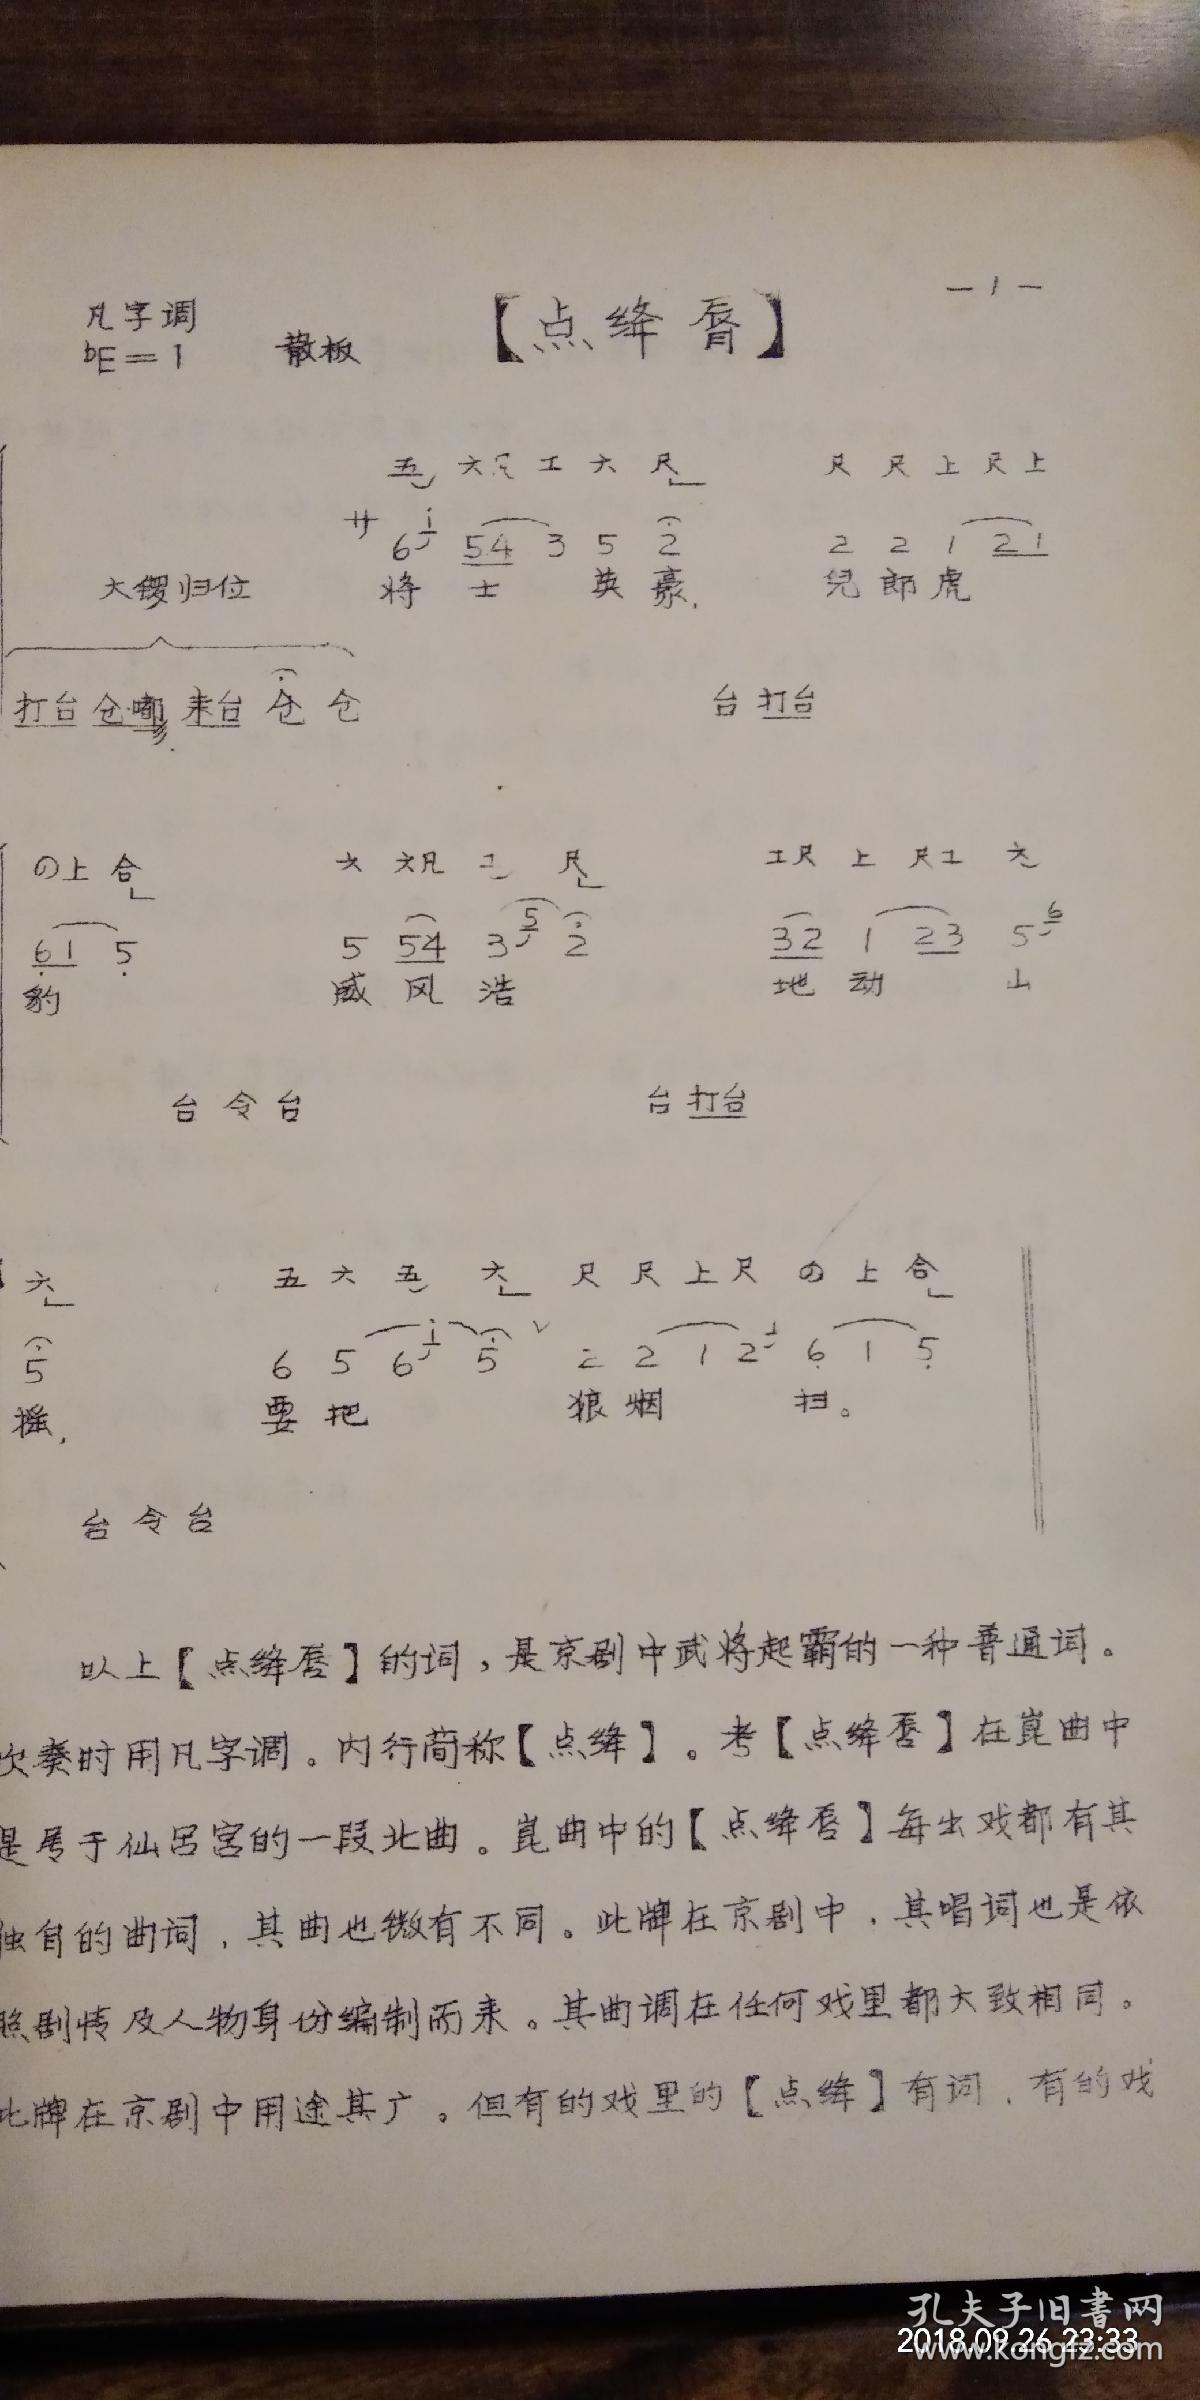 — 1 —
凡字调 【点绛唇】
bE=1 散板
五 六凡 工 六 尺 尺 尺 上 尺 上
サ 6 i 54 3 5 2 2 2 1 21
大锣归位 将 士 英 豪, 兒 郎 虎
打台 仓嘟 来台 仓 仓 台 打台
の上 合 六 六凡 工 尺 工尺 上 尺工 六
61 5 5 54 3 5 2 32 1 23 5 6
豹 威 风 浩 地 动 山
台 令 台 台 打台
六 五 六 五 六 尺 尺 上 尺 の 上 合
5 6 5 6 i 5 ∨ 2 2 1 2 1 6 1 5
摇, 要 把 狼 烟 扫。
台 令 台
以上【点绛唇】的词,是京剧中武将起霸的一种普通词。
吹奏时用凡字调。内行简称【点绛】。考【点绛唇】在崑曲中
是属于仙吕宫的一段北曲。崑曲中的【点绛唇】每出戏都有其
独自的曲词,其曲也微有不同。此牌在京剧中,其唱词也是依
照剧情及人物身份编制而来。其曲调在任何戏里都大致相同。
此牌在京剧中用途其广。但有的戏里的【点绛】有词,有的戏
孔夫子旧書网
www.kongfz.com
2018.09.26 23:33